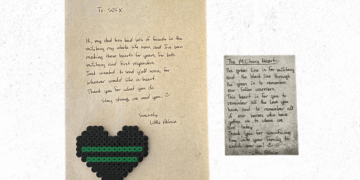 To: SOFX
Hi, my dad has had lots of friends in the
military my whole life now, and I've been
making these hearts for years, for both
military and first responders.
Just wanted to send y'all some, for
whoever would like a heart.
Thank you for what you do.
Stay strong, we need you. :)
Sincerely,
Little
The Military Heart:
The green line is for military
and the black line through
the green is to remember
our fallen warriors.
This heart is for you to
remember all the love you
have, and to remember all
of our heroes who have
gotten us to where we
are today.
Thank you for sacrificing
time with your family to
watch over us! :)
Little